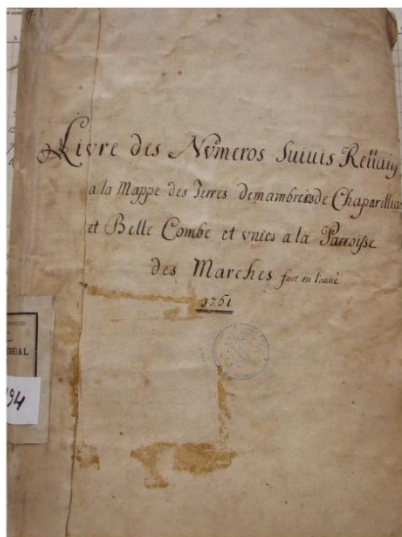 Livre des Numeros Suiuis Releués
a la Mappe des Terres demambrées de Chaparillian
et Belle Combe et vnies a la Parroisse
des Marches fait en l'anné
1761
94